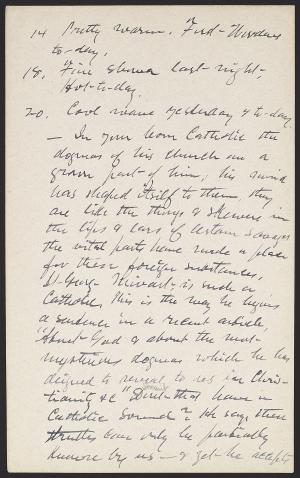 14 Pretty warm.
to-day.
18. Fine shower last night,
Hot to-day.
20. Cool wave yesterday & to-day.
— In your born Catholic the
dogmas of his church are a
grown part of him; his mind
has shaped itself to them, they
are like the rings & skewers in
the lips & ears of certain savages
the vital parts have made a place
for these foreign substances.
St. George Mivart is such a
Catholic. This is the way he begins
a sentence in a recent article,
"About God & about the most
mysterious dogmas which he has
deigned to reveal to us in Chris-
tianity &c" Dont that have a
Catholic sound? He says these
truths can only be partially
known by us — & yet he accepts